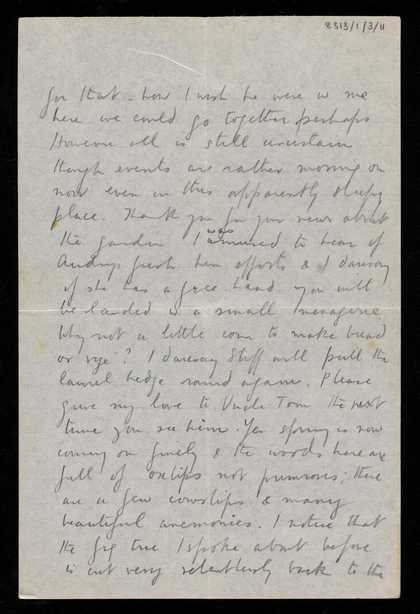 8313/1/3/11
for that - how I wish he were w me
here we could go together perhaps
However all is still uncertain
though events are rather moving on
now even in this apparently sleepy
place. Thank you for your news about
the garden I was amused to hear of
Audreys fresh hen efforts & I daresay
if she has a free hand you will
be landed w a small menagerie
Why not a little cow to make bread
or rye? I daresay Stiff will pull the
laurel hedge round again. Please
give my love to Uncle Tom the next
time you see him. Yes spring is now
coming on finely & the woods here are
full of oxlips not primroses; there
are a few cowslips & many
beautiful anemonies. I notice that
the fig tree I spoke about before
is cut very relentlessly back to the